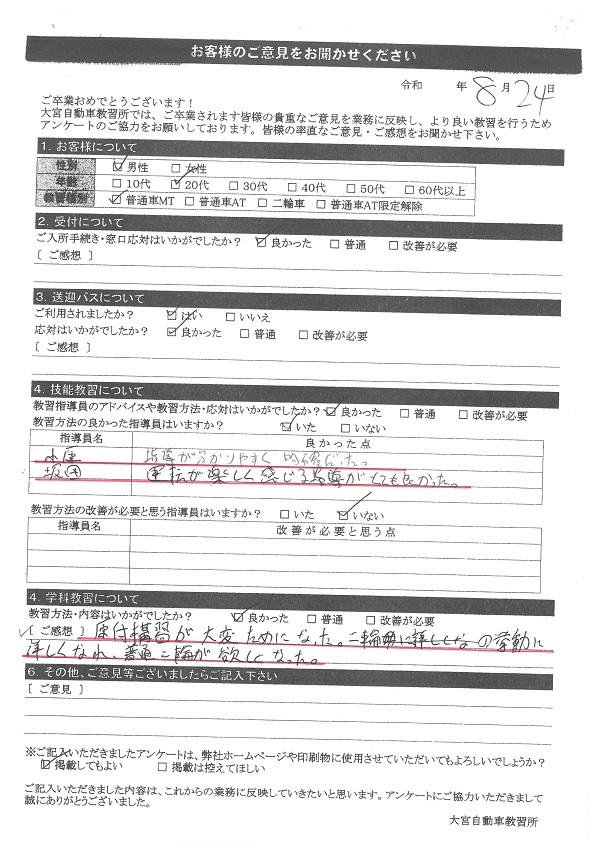 お客様のご意見をお聞かせください
令和 年 8 月 24 日
ご卒業おめでとうございます！
大宮自動車教習所では、ご卒業されます皆様の貴重なご意見を業務に反映し、より良い教習を行うため
アンケートのご協力をお願いしております。皆様の率直なご意見・ご感想をお聞かせ下さい。
1. お客様について
性別 ☑男性 □女性
年齢 □10代 ☑20代 □30代 □40代 □50代 □60代以上
教習種別 ☑普通車MT □普通車AT □二輪車 □普通車AT限定解除
2. 受付について
ご入所手続き・窓口応対はいかがでしたか？ ☑良かった □普通 □改善が必要
〔 ご感想 〕
3. 送迎バスについて
ご利用されましたか？ ☑はい □いいえ
応対はいかがでしたか？ ☑良かった □普通 □改善が必要
〔 ご感想 〕
4. 技能教習について
教習指導員のアドバイスや教習方法・応対はいかがでしたか？ ☑良かった □普通 □改善が必要
教習方法の良かった指導員はいますか？ ☑いた □いない
指導員名 良かった点
指導が分かりやすく 的確だった。
坂田 運転が楽しく感じる指導がとても良かった。
教習方法の改善が必要と思う指導員はいますか？ □いた ☑いない
指導員名 改善が必要と思う点
4. 学科教習について
教習方法・内容はいかがでしたか？ ☑良かった □普通 □改善が必要
〔 ご感想 〕 原付講習が大変ためになった。二輪 の挙動に
詳しくなれ、普通二輪が欲しくなった。
6. その他、ご意見等ございましたらご記入下さい
〔 ご意見 〕
※ご記入いただきましたアンケートは、弊社ホームページや印刷物に使用させていただいてもよろしいでしょうか？
☑掲載してもよい □掲載は控えてほしい
ご記入いただきました内容は、これからの業務に反映していきたいと思います。アンケートにご協力いただきまして
誠にありがとうございました。
大宮自動車教習所